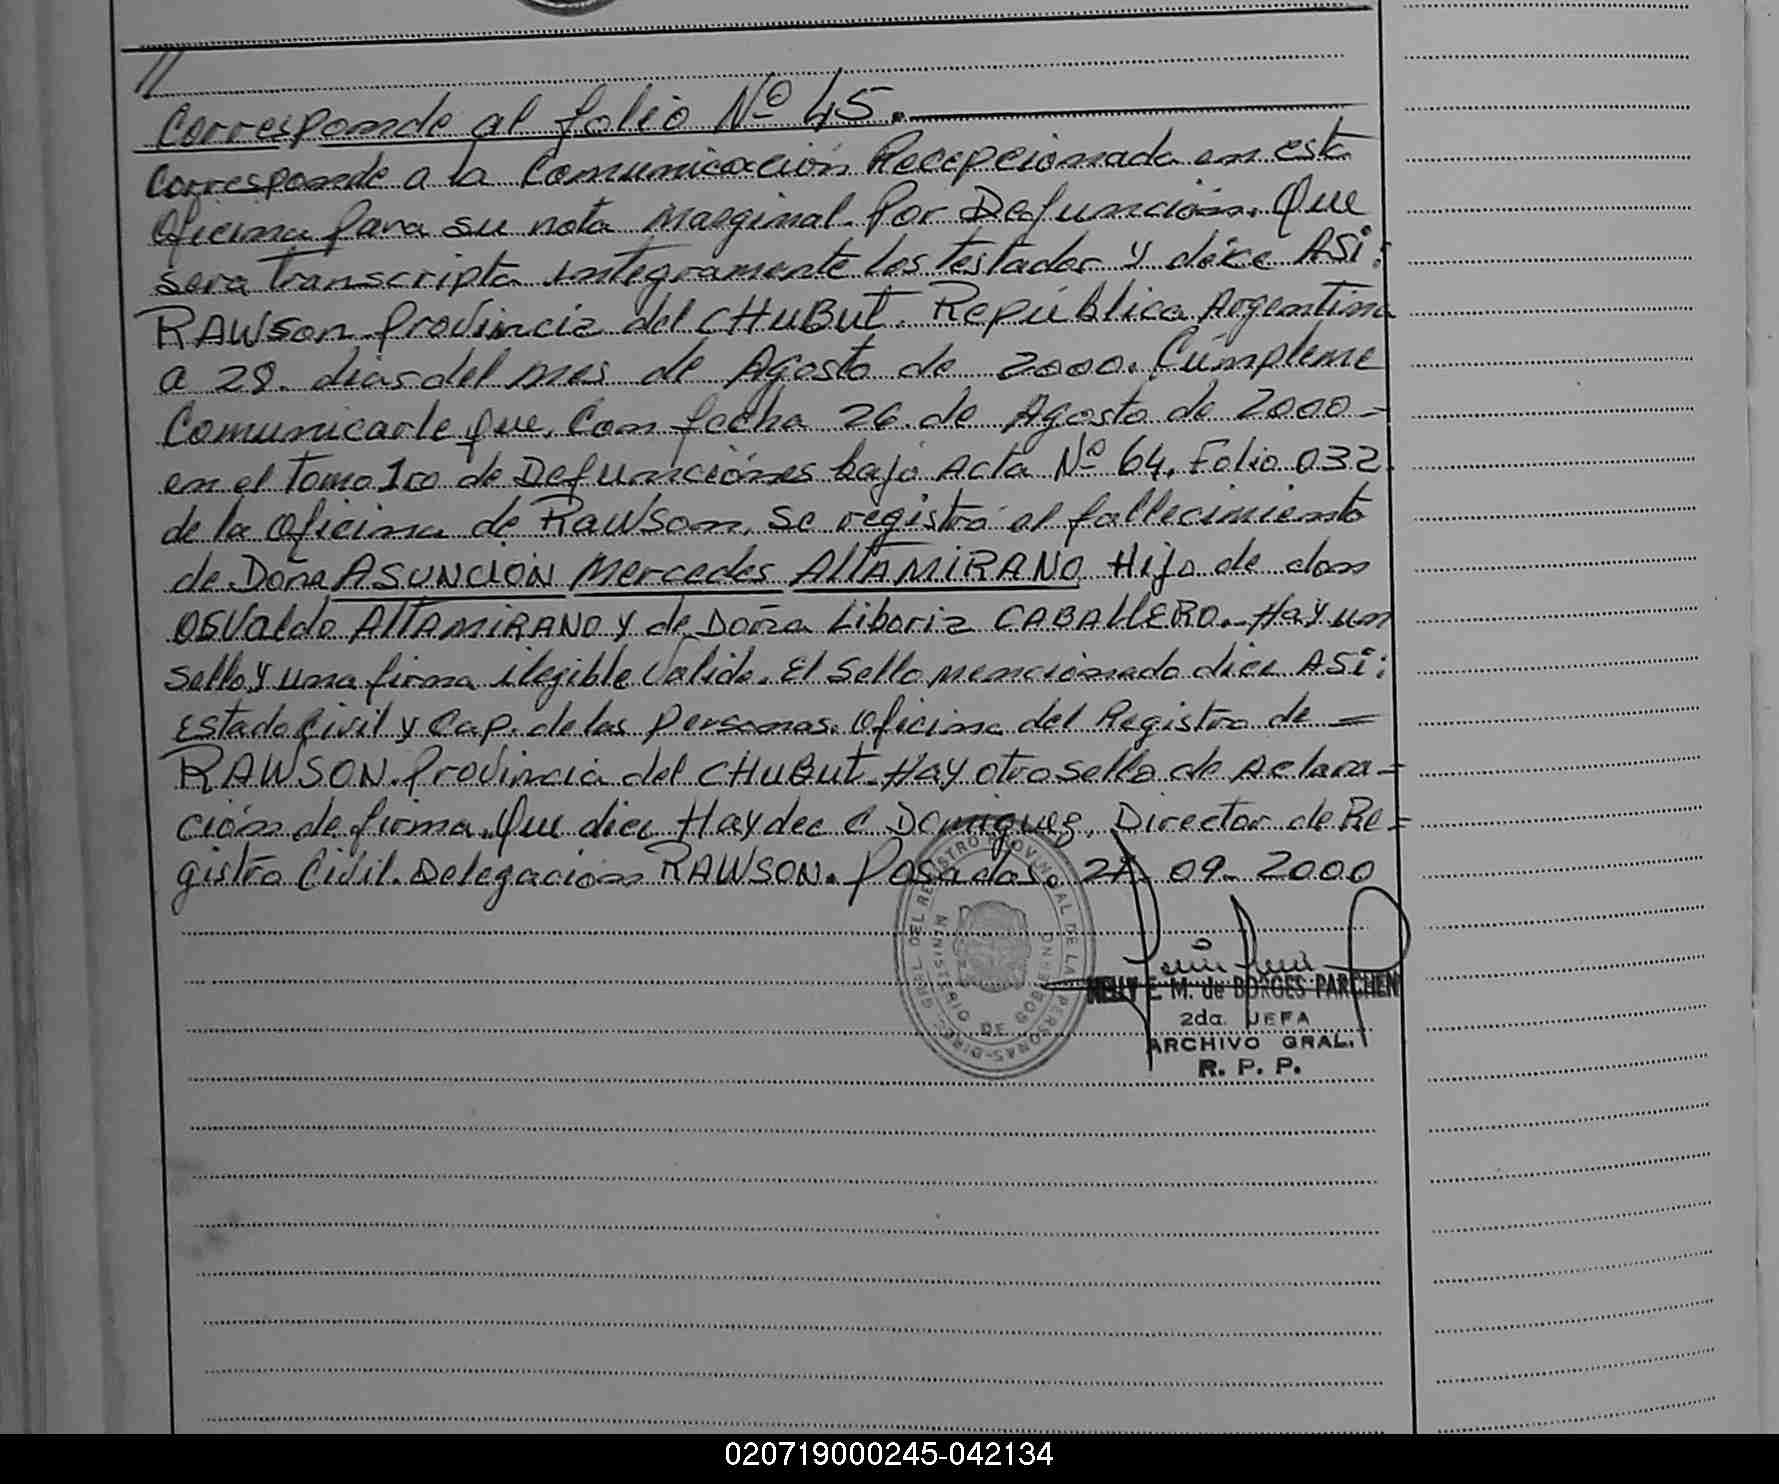 //
Corresponde al folio Nº 45.
Corresponde a la Comunicación Recepcionada en esta
Oficina para su nota marginal. Por Defunción. Que
sera transcripta integramente los testador y dice ASi:
RAWSon Provincia del CHUBUt. República Argentina
a 28. dias del mes de Agosto de 2000. Cúmpleme
Comunicarle que, Con fecha 26 de Agosto de 2000 =
en el Tomo 1ro de Defunciónes bajo Acta Nº 64, Folio 032.
de la Oficina de RaWSon, se registró el fallecimiento
de Doña ASUNCIÓN Mercedes AltAMiRANO Hija de don
OSValdo AltAMiRANO y de Doña Liboria CABAllERO.- Hay un
sello y una firma ilegible Valida. El sello mencionado dice ASi:
Estado Civil y Cap. de las Personas. Oficina del Registro de =
RAWSON. Provincia del CHUBUt. Hay otro sello de Aclara -
ción de firma. Que dice Haydee C Dominguez, Director de Re =
gistro Civil. Delegación RAWSON. Posadas. 27. 09. 2000
DEL REGISTRO PROVINCIAL DE LAS PERSONAS-DIREC. GRAL.
MINISTERIO DE GOBIERNO
NELLY E. M. de BORGES PARCHEN
2da. JEFA
ARCHIVO GRAL.
R. P. P.
020719000245-042134